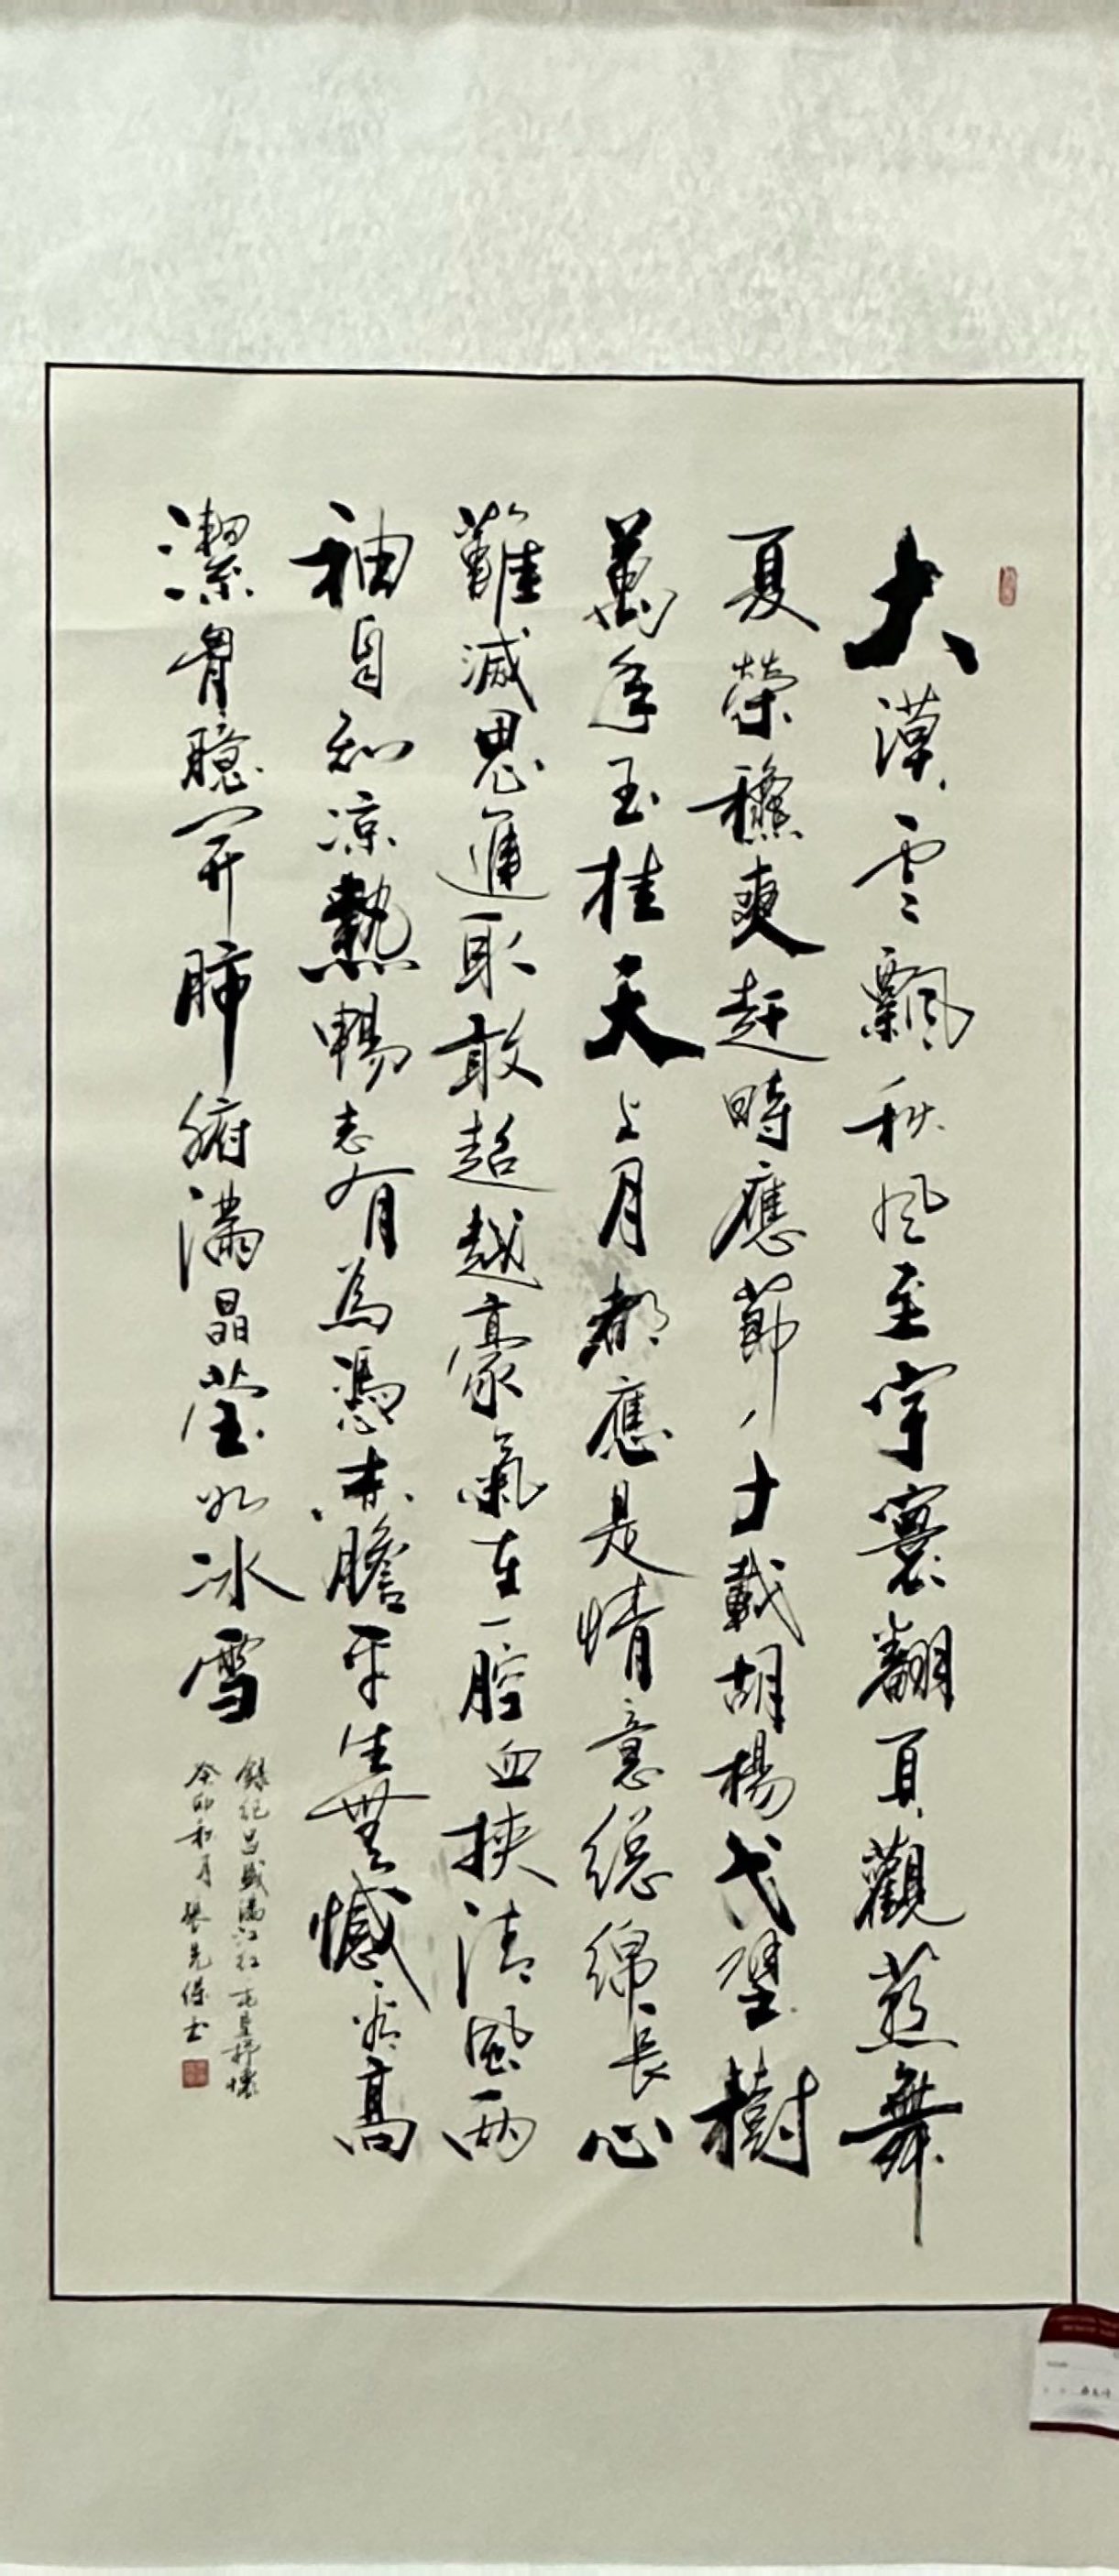 大漠雲飄秋風至宇寰翻頁觀燕舞
夏榮穐爽赶時應節八十載胡楊代望樹
萬年玉桂天上月都應是情意總綿長心
難滅思進取敢超越豪氣在一腔血挾清風兩
袖自知涼熱暢志有為憑赤膽平生無憾高
潔骨臆開肺腑滿晶瑩如冰雪
錄紀昌盛滿江紅
癸卯秋月張先保書